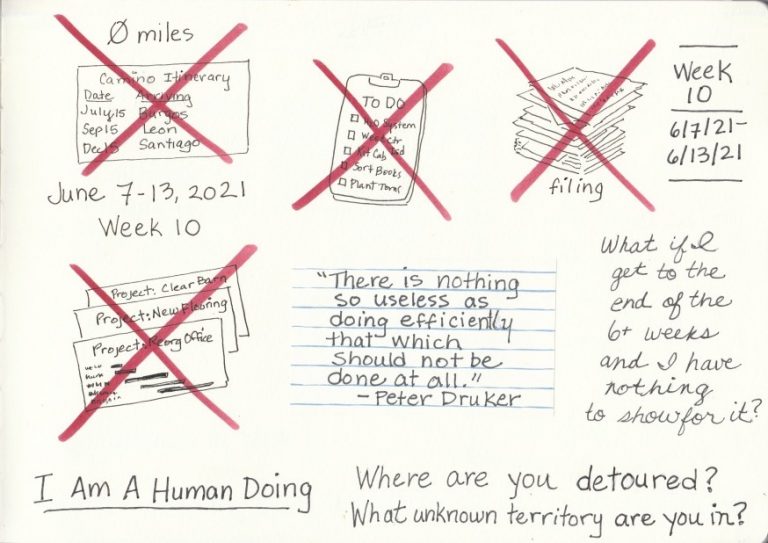 Ø miles
Camino Itinerary
Date Arriving
July 15 Burgos
Sep 15 Leon
Dec 15 Santiago
June 7-13, 2021
Week 10
TO DO
H2O System
Ctr
Kit Cab
Sort Books
Plant Toms
filing
Week
10
6/7/21-
6/13/21
Project: Clear Barn
Project: New Flooring
Project: Reorg Office
"There is nothing
so useless as
doing efficiently
that which
should not be
done at all."
- Peter Druker
What if I
get to the
end of the
6+ weeks
and I have
nothing
to show for it?
I Am A Human Doing
Where are you detoured?
What unknown territory are you in?